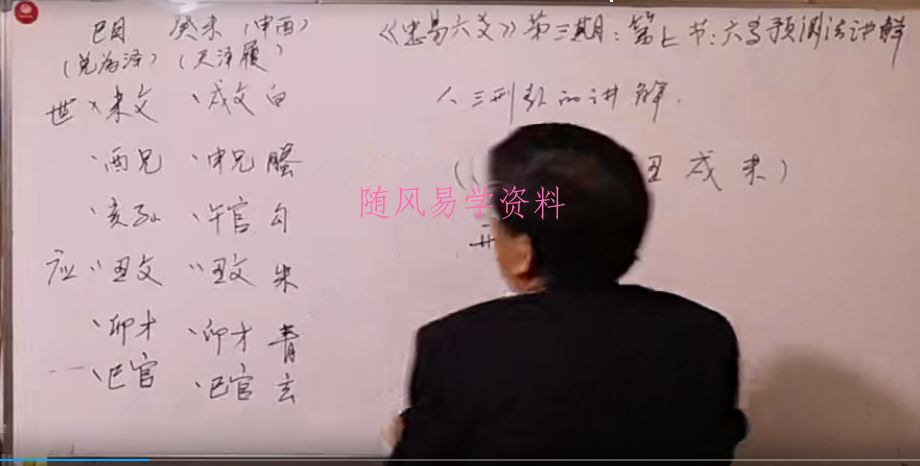 巳月 癸未 (申酉)
《忠易六爻》第三期:第七节:六书预测法讲解
(兑为泽) (天泽履)
世 × 未父 、戌父 白
人三刑 的讲解.
、酉兄 、申兄 螣
丑 戌 未)
随风易学资料
、亥子 、午官 勾
应 〃丑父 〃丑父 朱
、卯才 、卯才 青
、巳官 、巳官 玄